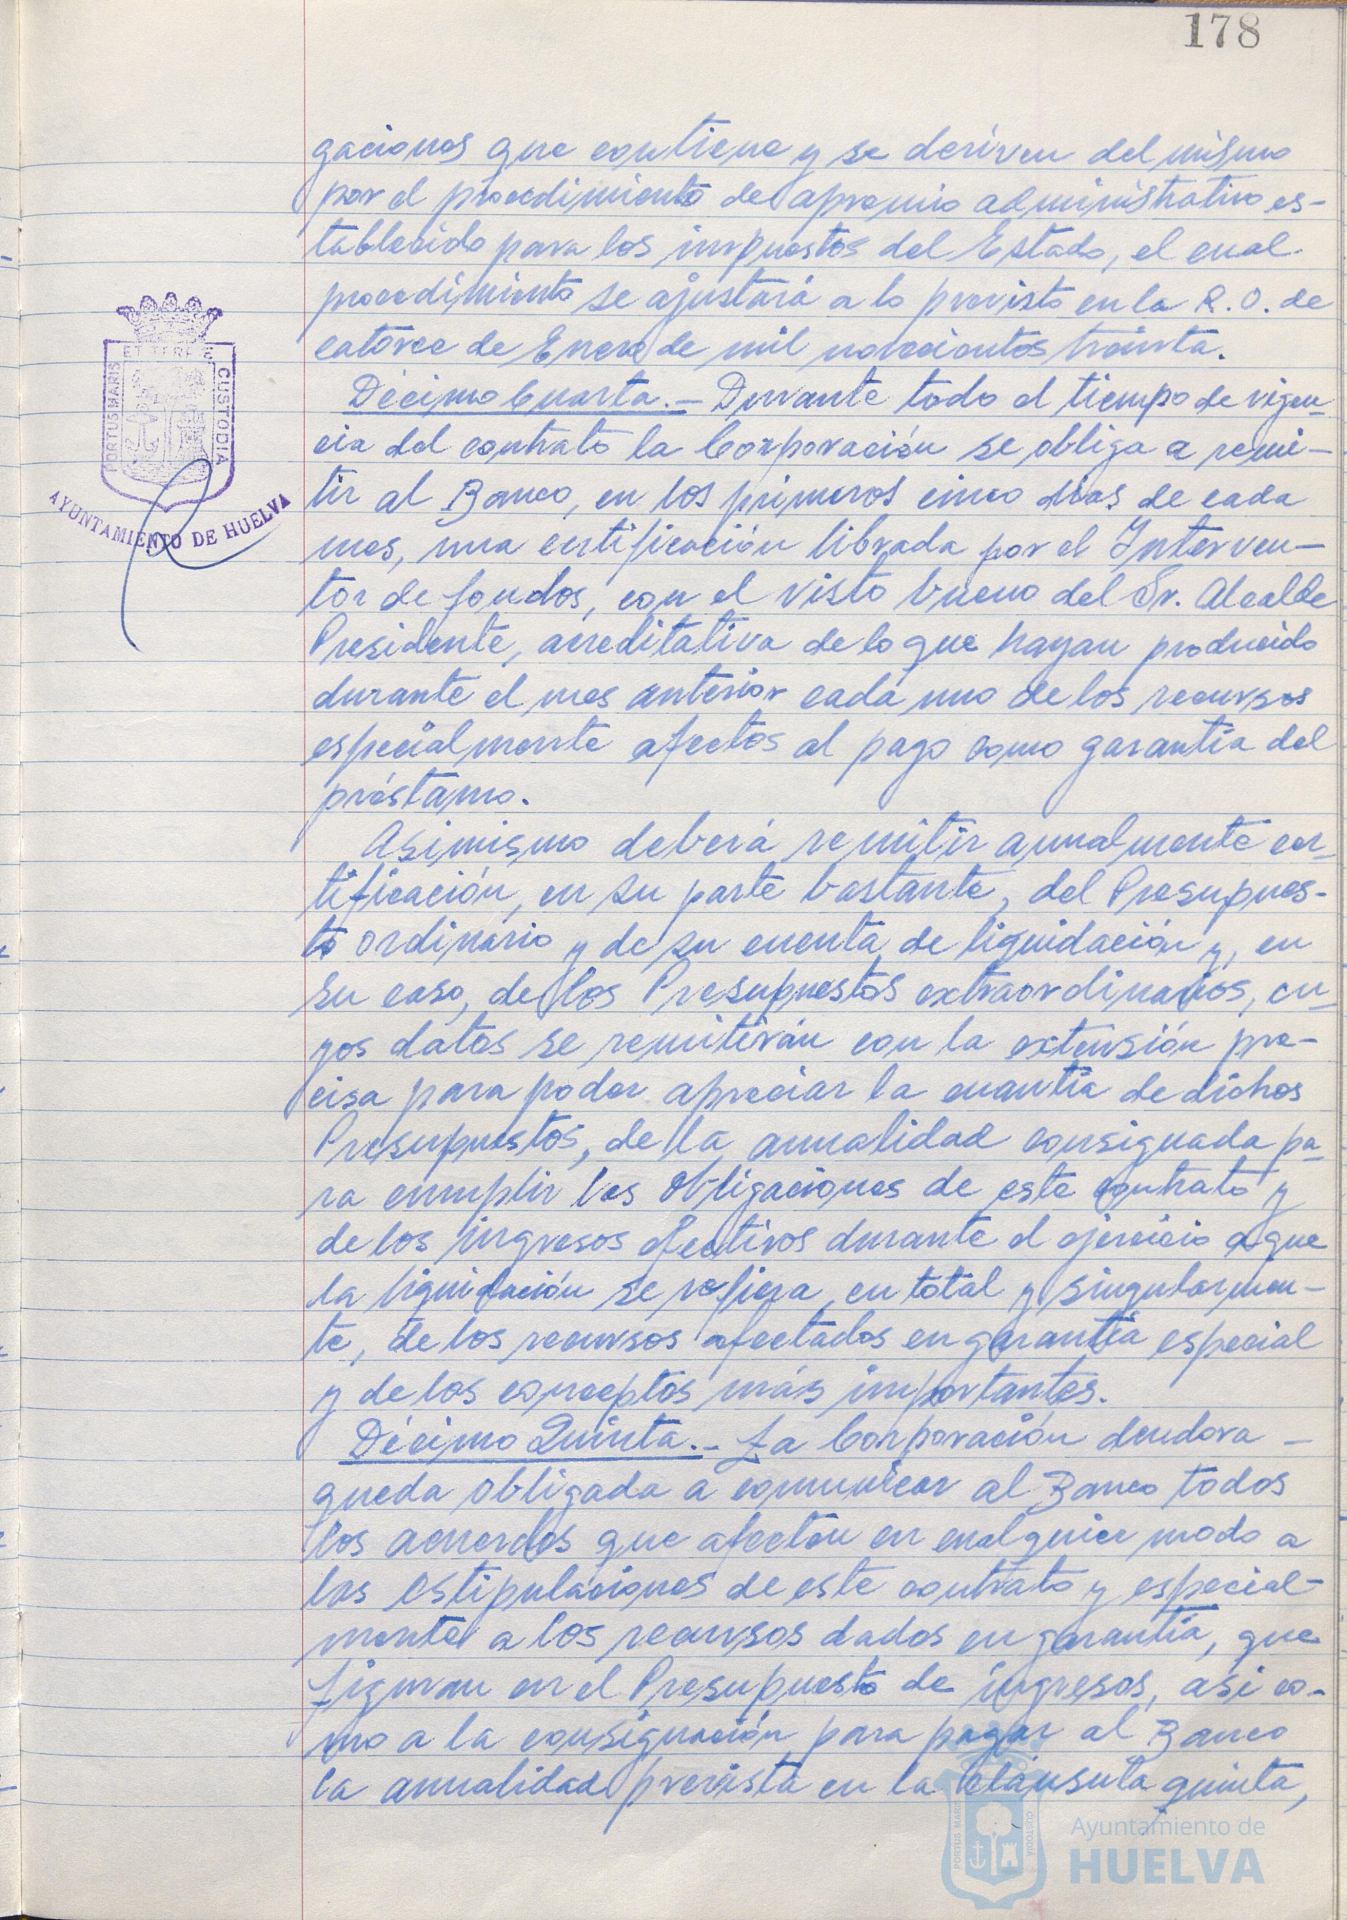 178
gaciones que contiene y se deriven del mismo
por el procedimiento de apremio administrativo es-
tablecido para los impuestos del Estado, el cual
procedimiento se ajustará a lo previsto en la R. O. de
catorce de Enero de mil novecientos treinta.
Décimo Cuarta.- Durante todo el tiempo de vigen-
cia del contrato la Corporación se obliga a remi-
tir al Banco, en los primeros cinco dias de cada
mes, una certificación librada por el Interven-
tor de fondos, con el visto bueno del Sr. Alcalde
Presidente, acreditativa de lo que hayan producido
durante el mes anterior cada uno de los recursos
especialmente afectos al pago como garantia del
préstamo.
Asimismo deberá remitir anualmente cer-
tificación, en su parte bastante, del Presupues-
to ordinario y de su cuenta de liquidación y, en
su caso, de los Presupuestos extraordinarios, cu-
yos datos se remitirán con la extensión pre-
cisa para poder apreciar la cuantia de dichos
Presupuestos, de la anualidad consignada pa-
ra cumplir las obligaciones de este contrato y
de los ingresos efectivos durante el ejercicio a que
la liquidación se refiera, en total y singularmen-
te, de los recursos afectados en garantia especial
y de los conceptos más importantes.
Décimo Quinta.- La Corporación deudora -
queda obligada a comunicar al Banco todos
los acuerdos que afecten en cualquier modo a
las estipulaciones de este contrato y especial-
mente a los recursos dados en garantia, que
figuran en el Presupuesto de ingresos, asi co-
mo a la consignación para pagar al Banco
la anualidad prevista en la cláusula quinta,
PORTUS MARIS ET TERRE CUSTODIA
AYUNTAMIENTO DE HUELVA
PORTUS MARIS CUSTODIA
Ayuntamiento de
HUELVA